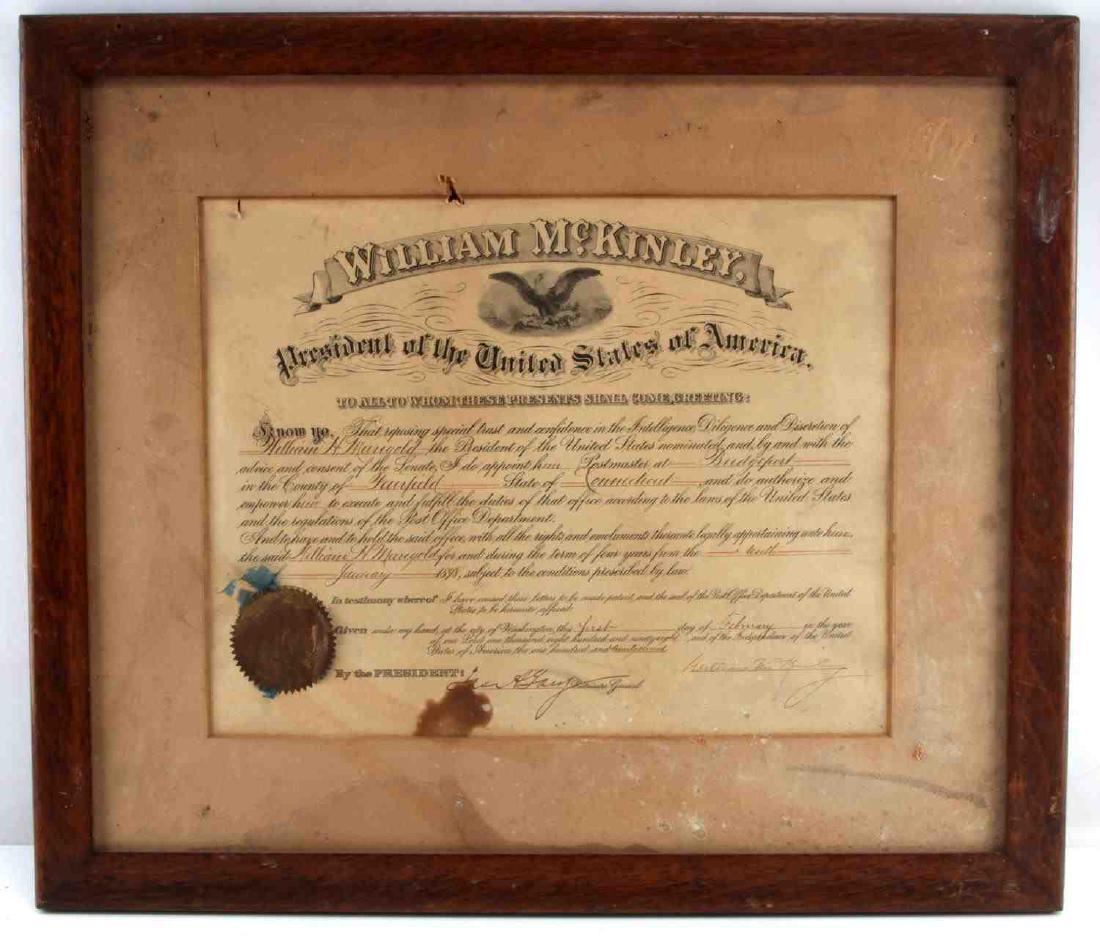 WILLIAM McKINLEY,
President of the United States of America.
TO ALL TO WHOM THESE PRESENTS SHALL COME, GREETING:
Know ye, That reposing special trust and confidence in the Intelligence, Diligence and Discretion of
William H. Marigold, the President of the United States nominated, and, by and with the
advice and consent of the Senate, I do appoint him Postmaster at Bridgeport
in the County of Fairfield State of Connecticut and do authorize and
empower him to execute and fulfill the duties of that office according to the laws of the United States
and the regulations of the Post Office Department.
And to have and to hold the said office, with all the rights and emoluments thereunto legally appertaining unto him,
the said William H. Marigold for and during the term of four years from the tenth
January 1898, subject to the conditions prescribed by law.
In testimony whereof I have caused these letters to be made patent, and the seal of the Post Office Department of the United
States, to be hereunto affixed.
Given under my hand, at the city of Washington, this first day of February in the year
of our Lord one thousand eight hundred and ninety eight and of the Independence of the United
States of America, the one hundred and twenty second
By the PRESIDENT: William McKinley
Jas. A. Gary General